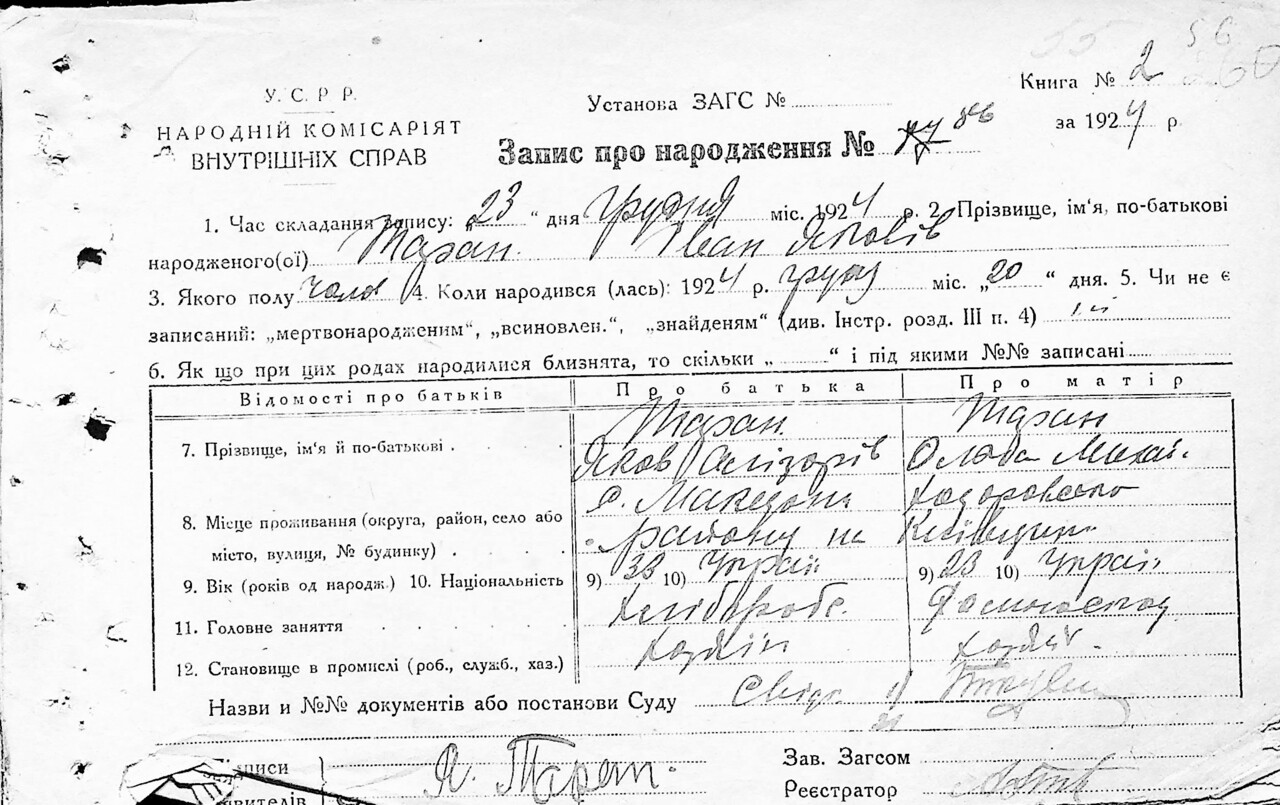 55 56
260
У. С. Р Р.
НАРОДНІЙ КОМІСАРІЯТ
ВНУТРІШНІХ СПРАВ
Установа ЗАГС №
Книга № 2
за 1924 р.
Запис про народження № 86
1. Час складання запису: „23 “ дня грудня міс. 1924 р. 2. Прізвище, ім'я, по-батькові
народженого(ої) Таран Іван Яковів
3. Якого полу чолов 4. Коли народився (лась): 1924 р. грудня міс. „20 “ дня. 5. Чи не є
записаний: „мертвонародженим“, „всиновлен.“, „знайденям“ (див. Інстр. розд. III п. 4) ні
6. Як що при цих родах народилися близнята, то скільки „ “ і під якими №№ записані
Відомості про батьків Про батька Про матір
7. Прізвище, ім'я й по-батькові . Таран Таран
Яков
8. Місце проживання (округа, район, село або
місто, вулиця, № будинку) . . району на Київщині
9. Вік (років од народж.) 10. Національність 9) 33 10) Україн 9) 28 10) Україн
11. Головне заняття . . . . . Хлібороб.
12. Становище в промислі (роб., служб., хаз.) хазяїн
Назви и №№ документів або постанови Суду
Зав. Загсом
Реєстратор
Я. Таран